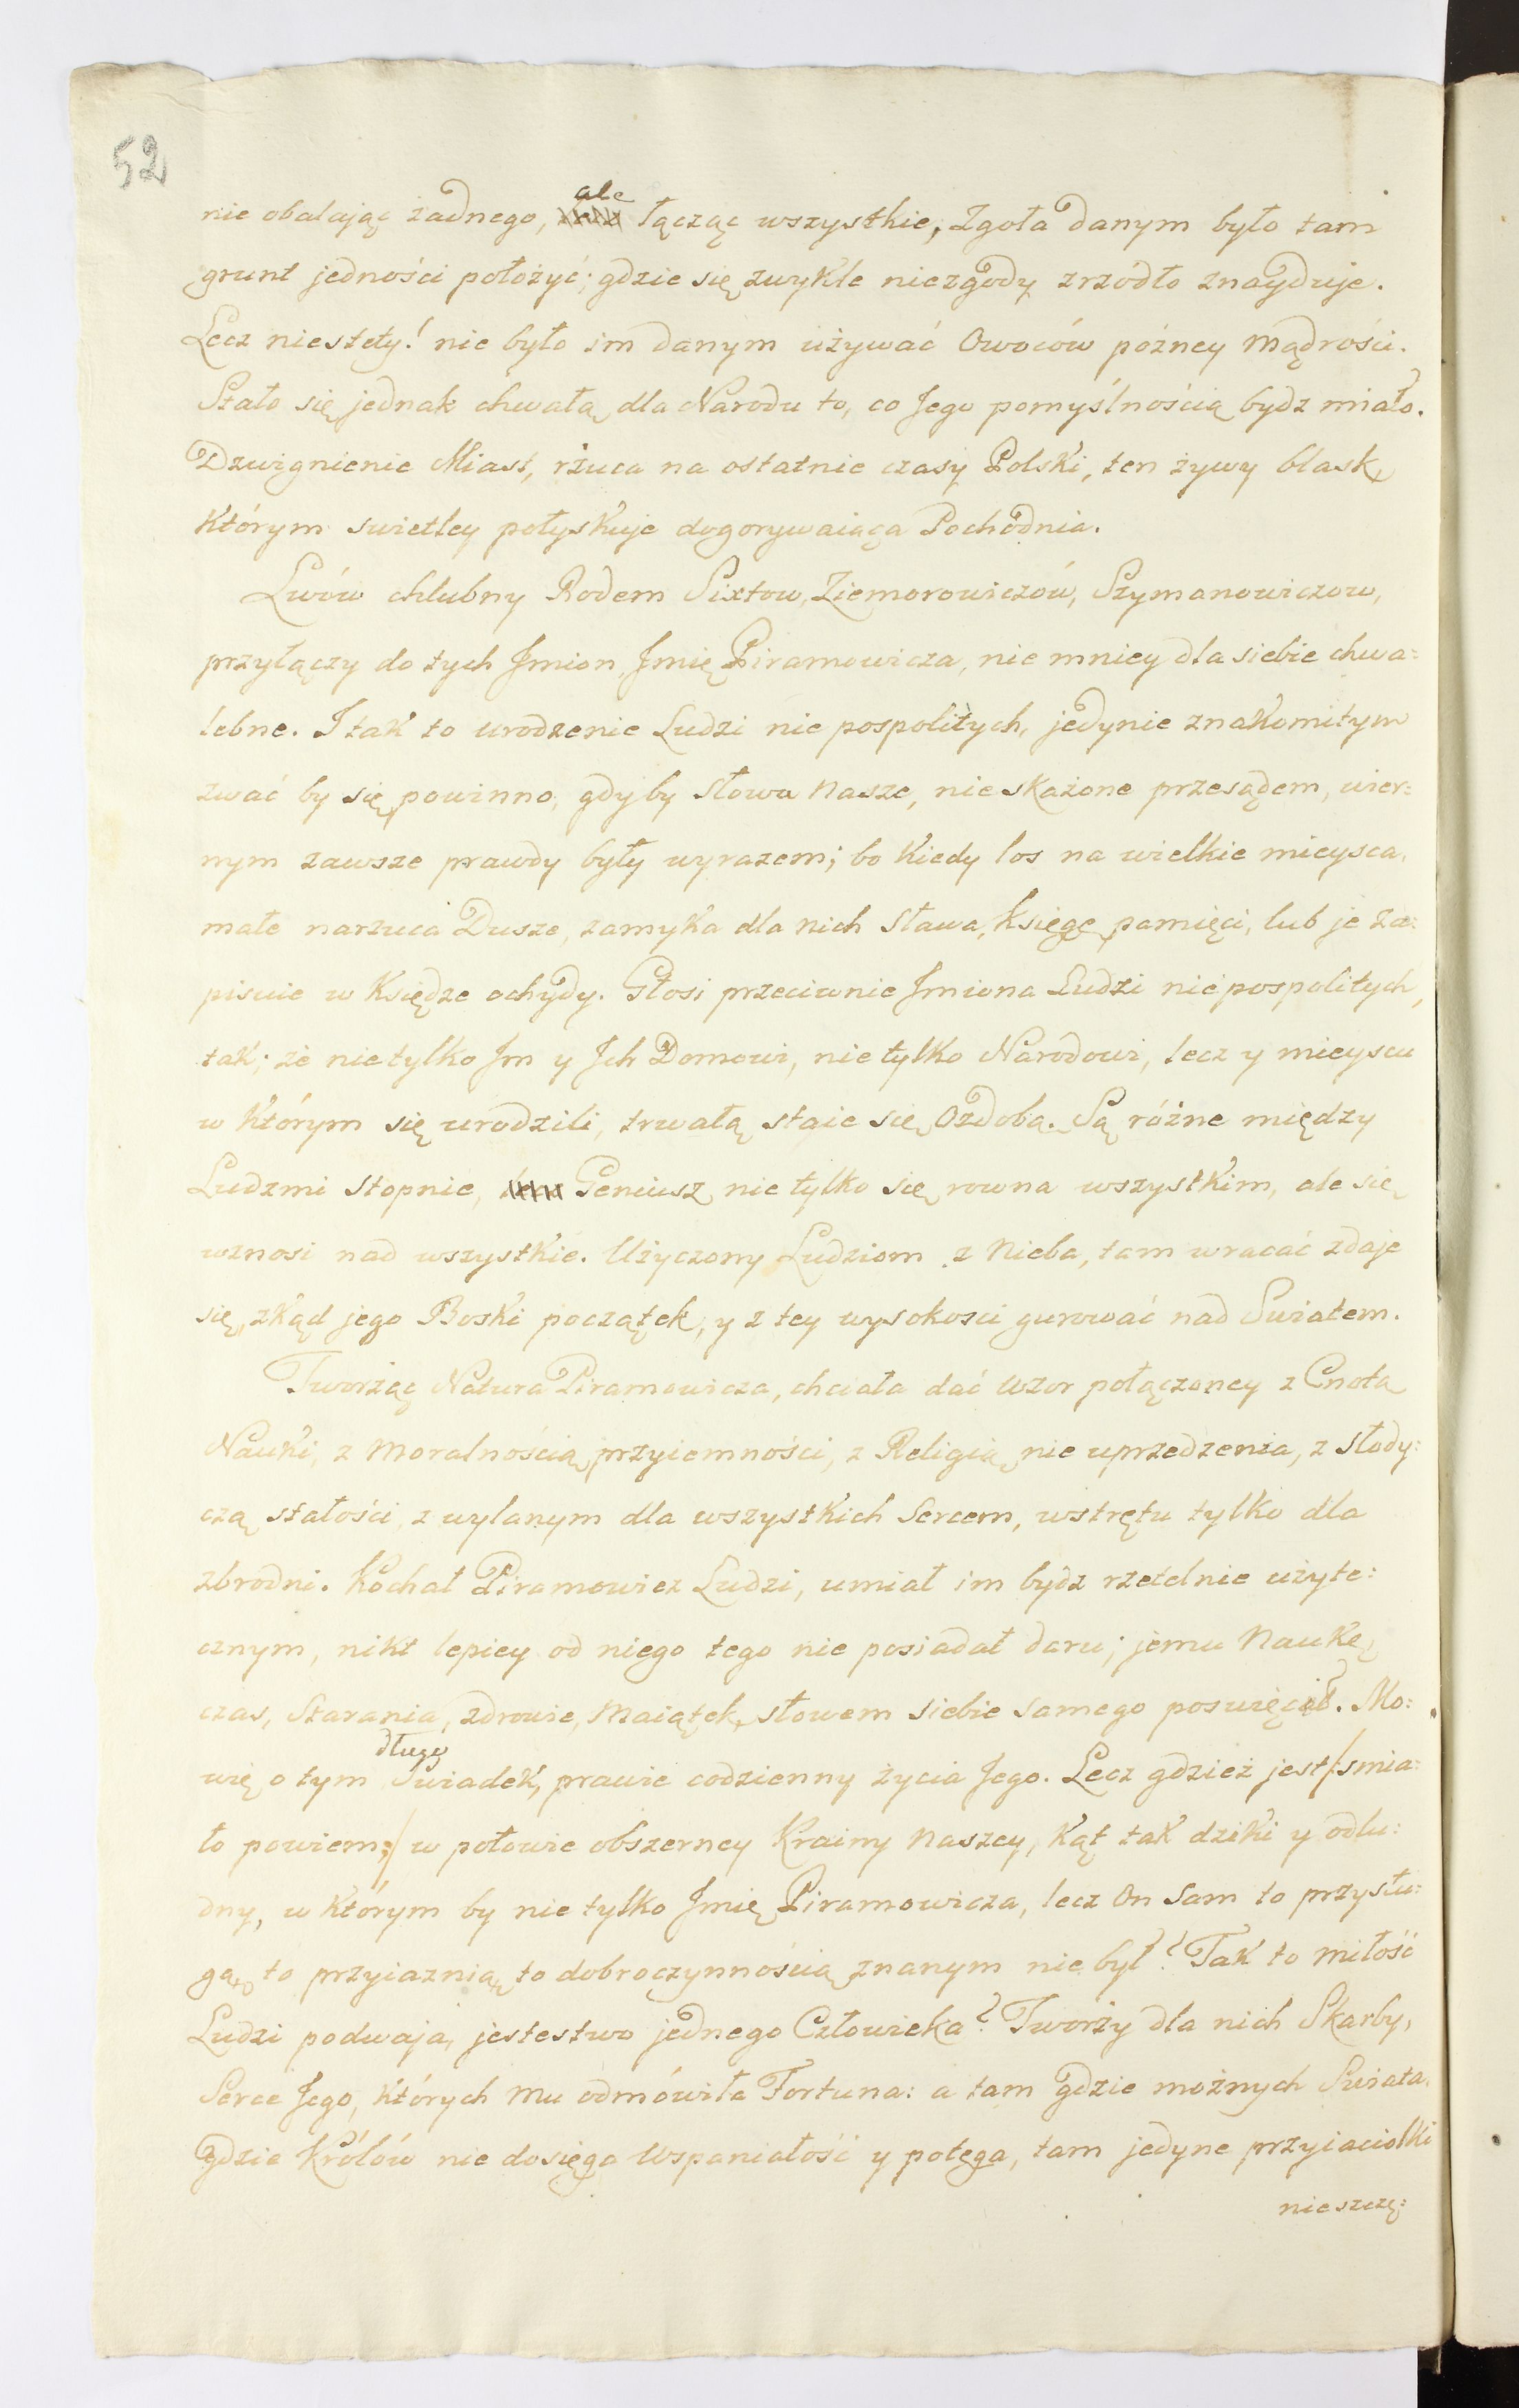 52
ale
nie obalając żadnego, łącząc wszystkie, Zgoła danym było tam
grunt jedności położyć; gdzie się zwykle niezgody zrzódło znayduje.
Lecz niestety! nie było im danym używać Owoców pózney Mądrości.
Stało się jednak chwałą dla Narodu to, co Jego pomyślnością bydz miało.
Dzwignienie Miast, rzuca na ostatnie czasy Polski, ten żywy blask,
którym swietley połyskuje dogorywaiąca Pochodnia.
Lwów chlubny Rodem Sixtow, Ziemorowiczów, Szymanowiczow,
przyłączy do tych Jmion, Jmię Piramowicza, nie mniey dla siebie chwa:
lebne. I tak to urodzenie Ludzi nie pospolitych, jedynie znakomitym
zwać by się powinno, gdyby słowa Nasze, nie skażone przesądem, wier:
nym zawsze prawdy były wyrazem; bo kiedy los na wielkie mieysca,
małe narzuca Dusze, zamyka dla nich Sława, księgę pamięci, lub je za:
pisuie w Księdze ochydy. Głosi przeciwnie Jmiona Ludzi nie pospolitych,
tak; że nie tylko Jm y Jch Domowi, nie tylko Narodowi, lecz y mieyscu
w którym się urodzili, trwałą staie się Ozdobą. Są różne między
Ludzmi stopnie, Geniusz nie tylko się rowna wszystkim, ale się
wznosi nad wszystkie. Użyczony Ludziom z Nieba, tam wracać zdaje
się, zkąd jego Boski początek, y z tey wysokosci gurować nad Swiatem.
Tworząc Natura Piramowicza, chciała dać wzor połączoney z Cnotą
Nauki, z Moralnością przyiemności, z Religią nie uprzedzenia, z słody:
czą stałości, z wylanym dla wszystkich Sercem, wstrętu tylko dla
zbrodni. Kochał Piramowicz Ludzi, umiał im bydz rzetelnie użyte:
cznym, nikt lepiey od niego tego nie posiadał daru; jemu Naukę,
czas, Starania, zdrowie, Maiątek, słowem siebie samego poswięcił. Mo:
długo
wię o tym Swiadek, prawie codzienny życia Jego. Lecz gdzież jest /:smia:
ło powiem:/ w połowie obszerney Krainy Naszey, kąt tak dziki y odlu:
dny, w którym by nie tylko Jmię Piramowicza, lecz On sam to przysłu:
gą, to przyiaznią, to dobroczynnością znanym nie był? Tak to miłość
Ludzi podwaja, jestestwo jednego Człowieka? Tworzy dla nich Skarby,
Serce Jego, których Mu odmówiła Fortuna: a tam gdzie możnych Swiata,
gdzie Królów nie dosięga Wspaniałość y potęga, tam jedyne przyiaciolki
nieszczę: